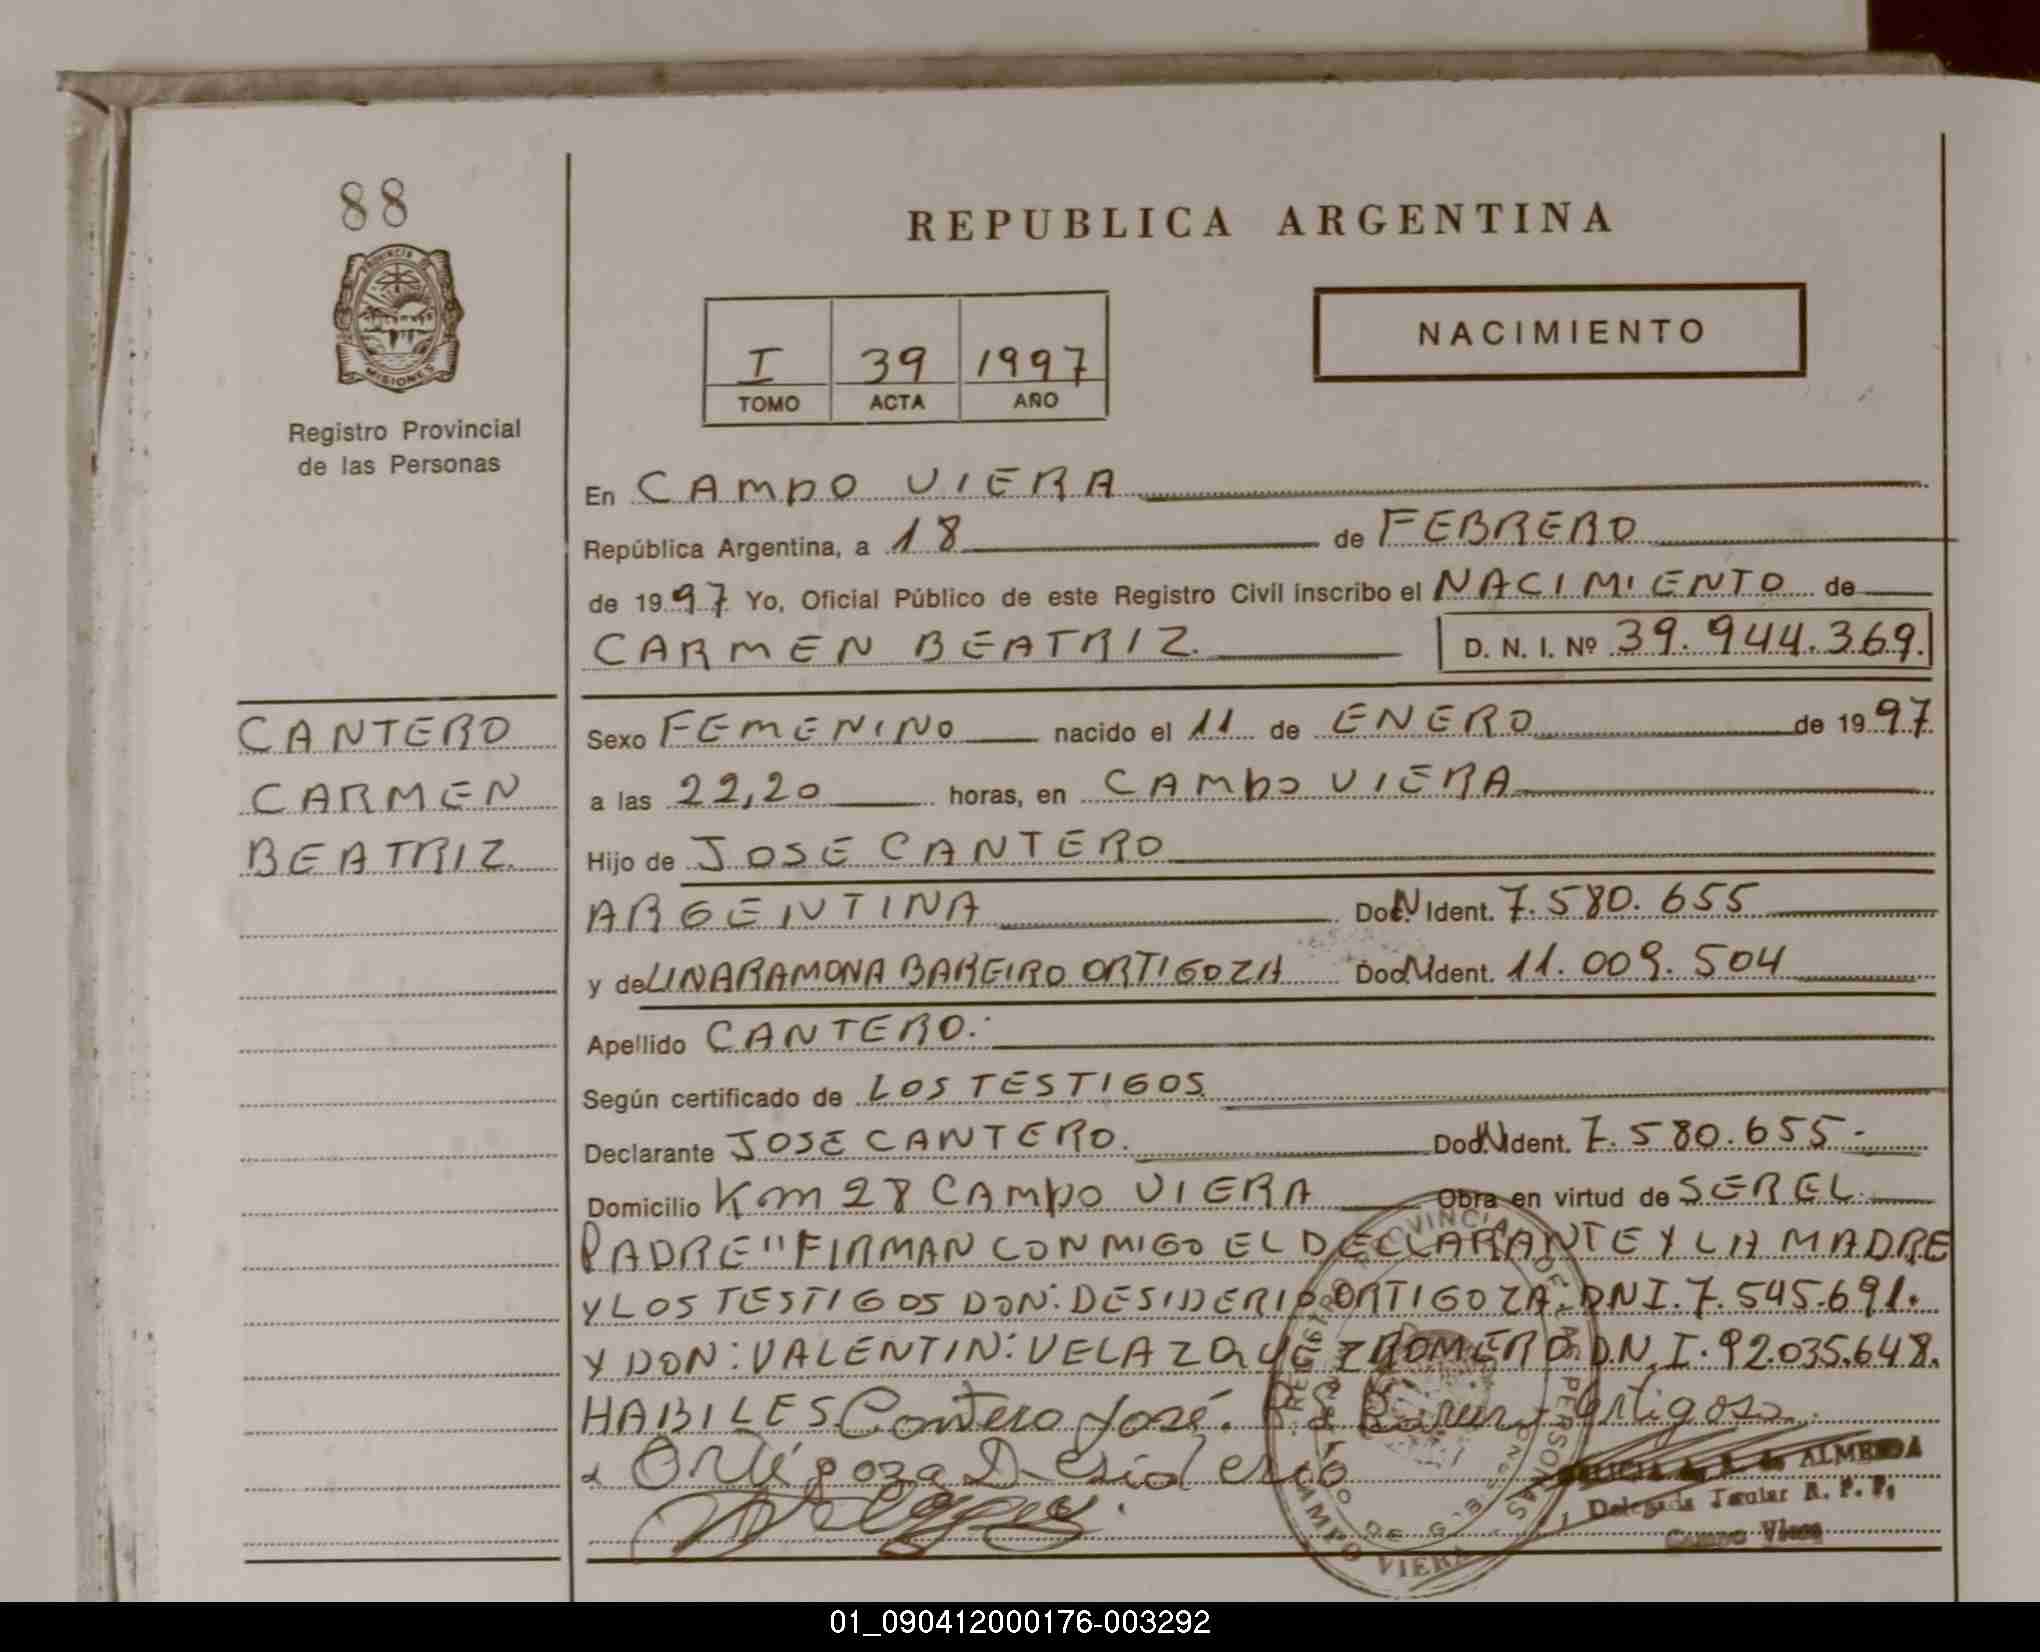 88
PROVINCIA DE
MISIONES
Registro Provincial
de las Personas
REPUBLICA ARGENTINA
I 39 1997
TOMO ACTA AÑO
NACIMIENTO
En CAMPO VIERA
República Argentina, a 18 de FEBRERO
de 1997 Yo, Oficial Público de este Registro Civil inscribo el NACIMIENTO de
CARMEN BEATRIZ. D. N. I. Nº 39.944.369.
CANTERO
CARMEN
BEATRIZ.
Sexo FEMENINO nacido el 11 de ENERO de 1997
a las 22,20 horas, en CAMPO VIERA
Hijo de JOSE CANTERO
ARGENTINA Doc. N Ident. 7.580.655
y de LINA RAMONA BAREIRO ORTIGOZA Doc. N Ident. 11.009.504
Apellido CANTERO.-
Según certificado de LOS TESTIGOS
Declarante JOSE CANTERO. Doc. N Ident. 7.580.655-
Domicilio Km 28 CAMPO VIERA Obra en virtud de SER EL
PADRE" FIRMAN CONMIGO EL DECLARANTE Y LA MADRE
Y LOS TESTIGOS DON: DESIDERIO ORTIGOZA. DNI. 7.545.691.
Y DON: VALENTIN: VELAZQUEZ ROMERO. D.N.I. 92.035.648.
HABILES. Cantero José. Ortigosa
Ortigoza Desiderio
ALMEIDA
Delegada Titular R. P. P.
Campo Viera
CAMPO VIERA
01_090412000176-003292